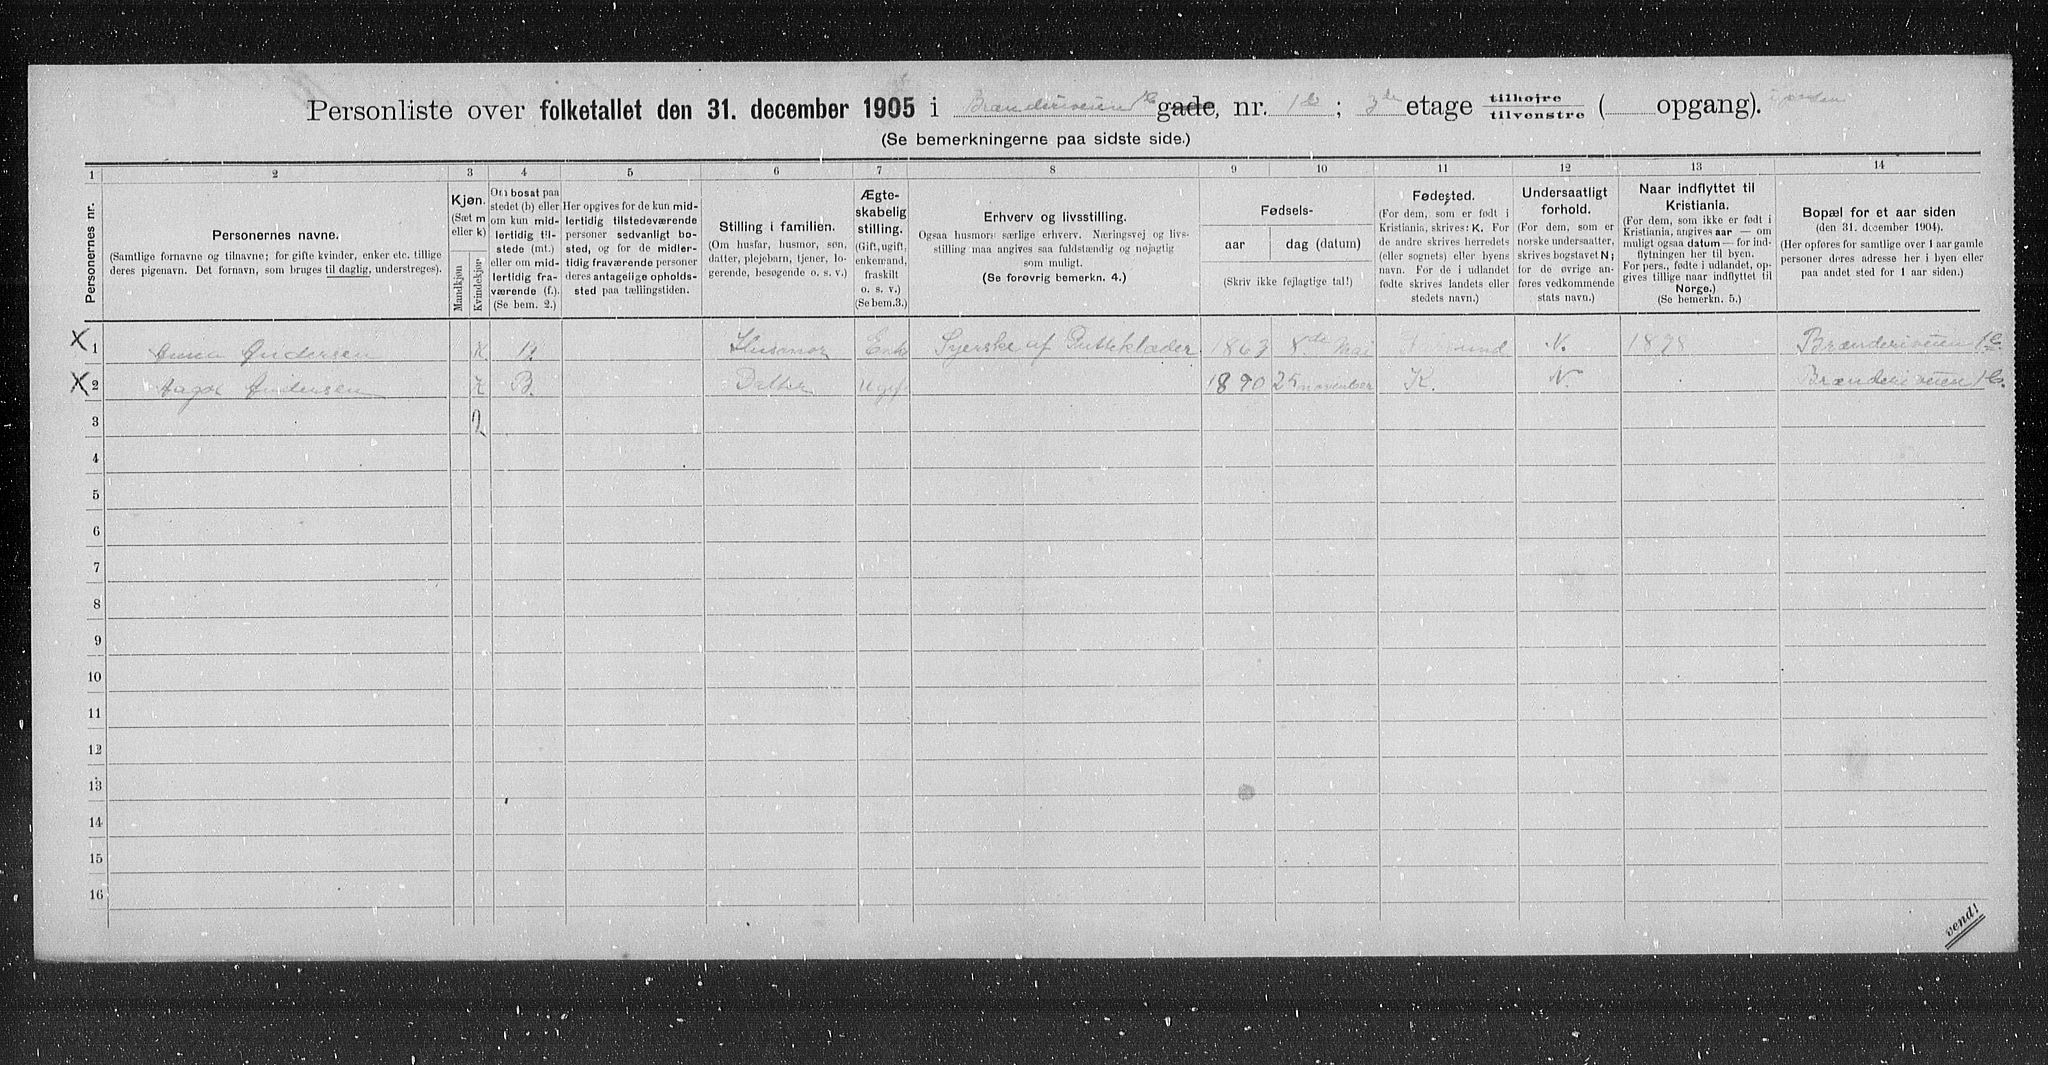 Personliste over folketallet den 31. december 1905 i Brænderiveien gade, nr. 1 ; 3de etage tilhøjre tilvenstre ( opgang).
(Se bemerkningerne paa sidste side.)
1 2 3 4 5 6 7 8 9 10 11 12 13 14
Personernes nr.
Personernes navne.
(Samtlige fornavne og tilnavne; for gifte kvinder, enker etc. tillige deres pigenavn. Det fornavn, som bruges til daglig, understreges).
Kjøn.
(Sæt m eller k)
Mandkjøn
Kvindekjøn
Om bosat paa stedet (b) eller om kun midlertidig tilstede (mt.) eller om midlertidig fraværende (f.). (Se bem. 2.)
Her opgives for de kun midlertidig tilstedeværende personer sedvanligt bosted, og for de midlertidig fraværende personer deres antagelige opholdssted paa tællingstiden.
Stilling i familien.
(Om husfar, husmor, søn, datter, plejebarn, tjener, logerende, besøgende o. s. v.)
Ægteskabelig stilling.
(Gift, ugift, enkemand, fraskilt o. s. v.) (Se bem.3.)
Erhverv og livsstilling.
Ogsaa husmors særlige erhverv. Næringsvej og livsstilling maa angives saa fuldstændig og nøjagtig som muligt.
(Se forøvrig bemerkn. 4.)
Fødsels-
aar dag (datum)
(Skriv ikke fejlagtige tal!)
Fødested.
(For dem, som er født i Kristiania, skrives: K. For de andre skrives herredets (eller sognets) eller byens navn. For de i udlandet fødte skrives landets eller stedets navn.)
Undersaatligt forhold.
(For dem, som er norske undersaatter, skrives bogstavet N; for de øvrige anføres vedkommende stats navn.)
Naar indflyttet til Kristiania.
(For dem, som ikke er født i Kristiania, angives aar — om muligt ogsaa datum — for indflytningen her til byen. For pers., fødte i udlandet, opgives tillige naar indflyttet til Norge.)
(Se bemerkn. 5.)
Bopæl for et aar siden
(den 31. december 1904).
(Her opføres for samtlige over 1 aar gamle personer deres adresse her i byen eller paa andet sted for 1 aar siden.)
X 1 Andersen K B. Husmor Enke Syerske af Gutteklæder 1863 8de Mai N. 1898 Brænderiveien
X 2 Andersen K B. Datter Ugift 1890 25 november K. N. Brænderiveien
3 2
4
5
6
7
8
9
10
11
12
13
14
15
16
vend!